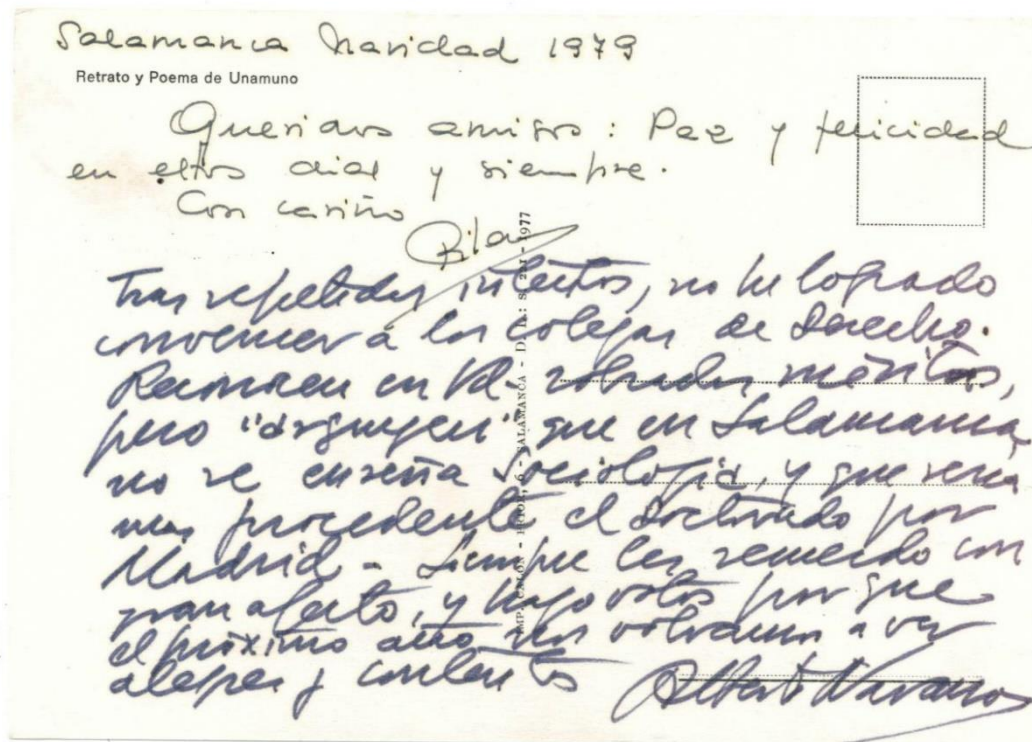 Salamanca Navidad 1979
Retrato y Poema de Unamuno
Queridos amigos: Paz y felicidad
en estos dias y siempre.
Con cariño
Pilar
Tras repetidos intentos, no he logrado
convencer a los colegas de Derecho.
Reconocen en Vd. sobrados méritos,
pero "arguyen" que en Salamanca
no se enseña Sociología, y que sería
mas procedente el doctorado por
Madrid - Siempre les recuerdo con
gran afecto, y hago votos por que
el próximo año nos volvamos a ver
alegres y contentos
Alberto Navarro
IMP. CALATRAVA - SALAMANCA - D. L.: S. 221 - 1977